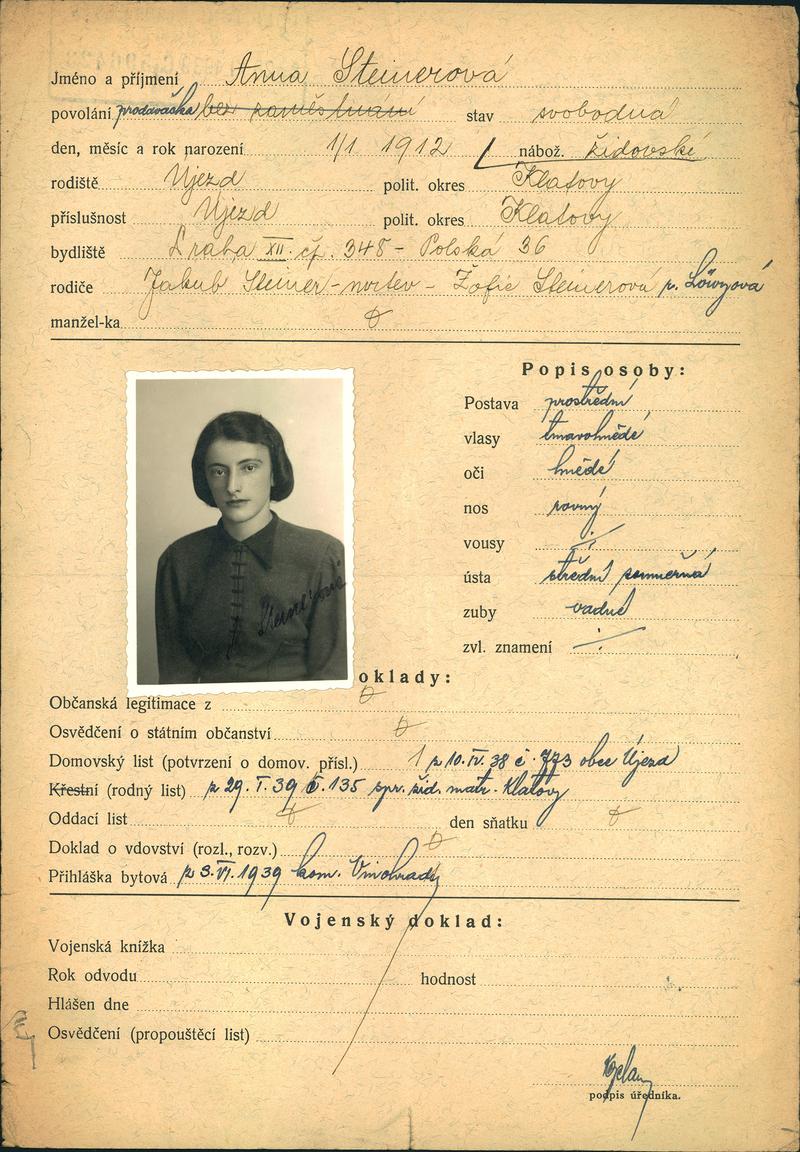 Jméno a příjmení Anna Steinerová
povolání prodavačka bez zaměstnání stav svobodná
den, měsíc a rok narození 1/1 1912 nábož. židovské
rodiště Újezd polit. okres Klatovy
příslušnost Újezd polit. okres Klatovy
bydliště Praha XII čp. 348 - Polská 36
rodiče Jakub Steiner - - Žofie Steinerová r. Löwyová
manžel-ka
Popis osoby:
Postava prostřední
vlasy tmavohnědé
oči hnědé
nos rovný
vousy
ústa střední souměrná
zuby vadné
zvl. znamení
Steinerová
oklady:
Občanská legitimace z
Osvědčení o státním občanství
Domovský list (potvrzení o domov. přísl.) z 10.IV.38 č. 773 obce Újezd
Křestní (rodný list) z 29.I.39 č. 135 spr. žid. matr. Klatovy
Oddací list den sňatku
Doklad o vdovství (rozl., rozv.)
Přihláška bytová z 3.VI.1939 kom. Vinohrady
Vojenský doklad:
Vojenská knížka
Rok odvodu hodnost
Hlášen dne
Osvědčení (propouštěcí list)
podpis úředníka.